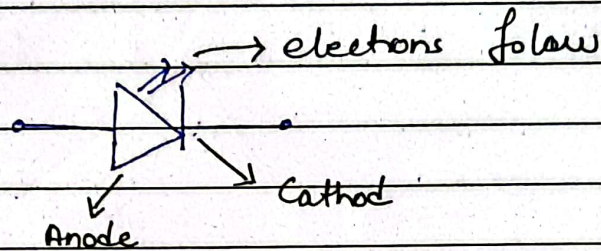 electrons folow
Cathod
Anode